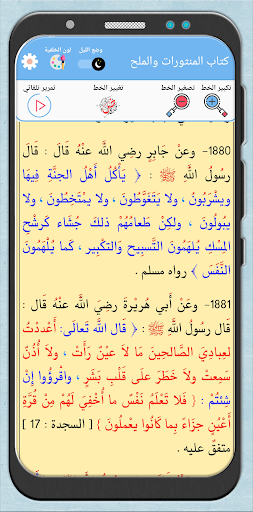 كتاب المنثورات والملح
وضع الليل
لون الخلفية
تكبير الخط
تصغير الخط
تغيير الخط
تمرير تلقائي
1880- وعنْ جَابِرٍ رضِيَ اللَّه عنْهُ قَالَ : قَالَ
رَسُولُ اللَّهِ ﷺ : { يَأْكُلُ أَهْلُ الجنَّةِ فِيهَا
ويشْرَبُونَ ، ولا يَتَغَوَّطُونَ ، ولا يمْتَخِطُونَ ، ولا
يبُولُونَ ، ولكِنْ طَعامُهُمْ ذلكَ جُشَاء كَرشْحِ
المِسْكِ يُلهَمُونَ التَّسبِيح وَالتكْبِير ، كَما يُلْهَمُونَ
النَّفَسَ } رواه مسلم .
1881- وَعَنْ أَبي هُريْرةَ رضِيَ اللَّه عنْهُ قَال :
قَال رسُولُ اللَّهِ ﷺ : { قَال اللَّه تَعَالَى: أَعْددْتُ
لعِبادِيَ الصَّالحِينَ مَا لاَ عيْنٌ رَأَتْ ، ولاَ أُذُنٌ
سَمِعتْ ولاَ خَطَرَ عَلَى قَلْبِ بَشَرٍ ، واقْرؤُوا إِنْ
شِئتُمْ : { فَلا تَعْلَمُ نَفْسٌ مَا أُخْفِيَ لَهُمْ مِنْ قُرَّةِ
أَعْيُنٍ جزَاءً بِما كَانُوا يعْمَلُونَ } [ السجدة : 17 ]
متفقٌ عليه .